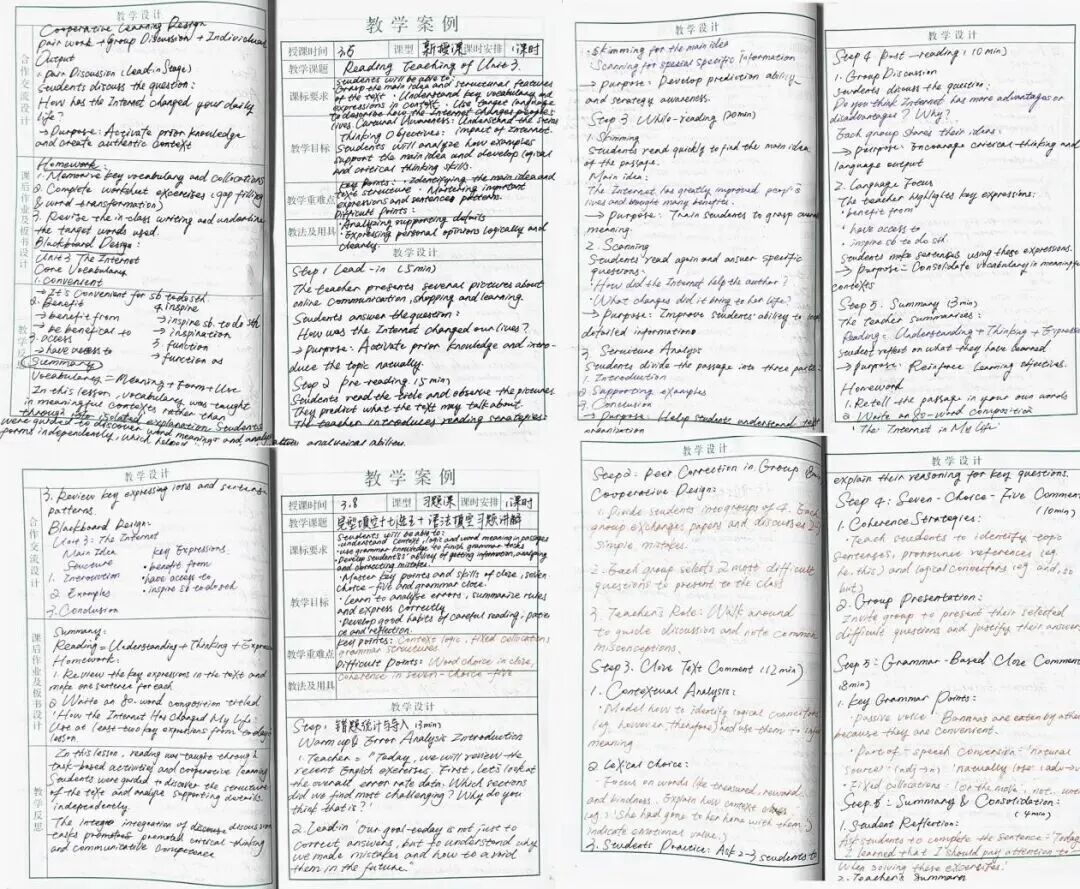 教学设计
合作交流设计
Cooperative Learning Design
pair work + Group Discussion + Individual
Output
Pair Discussion (Lead-in Stage)
Students discuss the question:
How has the Internet changed your daily
life?
→ Purpose: Activate prior knowledge
and create authentic context
课后作业及板书设计
Homework:
1. Memorize key vocabulary and collocations
2. Complete worksheet exercises (gap filling
& word transformation)
3. Revise the in-class writing and underline
the target words used.
Blackboard Design:
Unit 3 The Internet
Core Vocabulary
1. Convenient
→ It's convenient for sb to do sth.
2. Benefit
→ benefit from
→ be beneficial to
3. access
→ have access to
4. inspire
→ inspire sb. to do sth
→ inspiration
5. function
→ function as
教学反思
Summary
Vocabulary = Meaning + Form + Use
In this lesson, vocabulary was taught
in meaningful contexts rather than
through isolated explanation. Students
were guided to discover word meanings and analyze
forms independently, which analytical abilities.
教学案例
授课时间 3.6 课型 新授课 课时安排 1课时
教学课题 Reading Teaching of Unit 3.
课标要求
Students will be able to:
Grasp the main idea and structural features
of the text · Understand key vocabulary and
expressions in context · Use target language
to describe how the Internet changes people's
lives Cultural Awareness: Understand the
教学目标
Thinking Objectives: impact of Internet.
Students will analyze how examples
support the main idea and develop logical
and critical thinking skills.
教学重难点
Key points: · Identifying the main idea and
text structure · Mastering important
expressions and sentence patterns.
Difficult points:
教法及用具
· Analyzing supporting details
· Expressing personal opinions logically and
clearly.
教学设计
Step 1 Lead-in (5min)
The teacher presents several pictures about
online communication, shopping and learning.
Students answer the question:
How was the Internet changed our lives?
→ Purpose: Activate prior knowledge and intro-
duce the topic naturally.
Step 2 Pre-reading (5min)
Students read the title and observe the pictures
They predict what the text may talk about
The teacher introduces reading strategies:
教学设计
· Skimming for the main idea
· Scanning for special specific information
→ Purpose: Develop prediction ability
and strategy awareness.
Step 3 While-reading (20min)
1. Skimming
Students read quickly to find the main idea
of the passage.
Main idea:
The Internet has greatly improved people's
lives and brought many benefits.
→ Purpose: Train students to grasp overall
meaning.
2. Scanning
Students read again and answer specific
questions:
· How did the Internet help the author?
· What changes did it bring to her life?
→ Purpose: Improve students' ability to
detailed information
3. Structure Analysis
Students divide the passage into three parts:
1. Introduction
2. Supporting examples
3. Conclusion
→ Purpose: Help student understand text
organization
教学设计
Step 4 Post-reading (10min)
1. Group Discussion
Students discuss the question:
Do you think Internet has more advantages or
disadvantages? Why?
Each group shares their ideas.
→ Purpose: Encourage critical thinking and
language output
2. Language Focus
The teacher highlights key expressions:
· benefit from
· have access to
· inspire sb to do sth
Students make sentences using these expressions.
→ Purpose: Consolidate vocabulary in meaningful
contexts
Step 5. Summary (3min)
The teacher summarizes:
Reading = Understanding + Thinking + Expression
Student reflect on what they have learned
→ Purpose: Reinforce learning objectives.
Homework
1. Retell the passage in your own words
2. Write an 80-word composition
'The Internet in My Life'
教学设计
合作交流设计
3. Review key expressions and sentence
patterns.
Blackboard Design:
Unit 3: The Internet
Main Idea
Structure
1. Introduction
2. Examples
3. Conclusion
key Expressions.
· benefit from
· have access to
· inspire sb to do sth
课后作业及板书设计
Summary:
Reading = Understanding + Thinking + Expression
Homework:
1. Review the key expressions in the text and
make one sentence for each
2. Write an 80-word composition titled
'How the Internet Has Changed My Life'
Use at least two key expressions from today's
lesson.
教学反思
In this lesson, reading was taught through
task-based activities and cooperative learning
Students were guided to discover the structure
of the text and analyze supporting details
independently.
The integration of discussion
tasks promoted critical thinking
and communicative competence
教学案例
授课时间 3.8 课型 习题课 课时安排 1课时
教学课题 完型填空+七选五+语法填空习题讲解
课标要求
Students will be able to:
· understand context, logic and word meaning in passages
· use grammar knowledge to finish grammar tasks
· Develop students' ability of getting information, analyzing
and correcting mistakes.
教学目标
· Master key points and skills of cloze, seven
choice-five and grammar cloze.
· Learn to analyze errors, summarize rules
and express correctly
· Develop good habits of careful reading, patien-
ce and reflection.
教学重难点
Key points: Context logic, fixed collocations
grammar structures.
Difficult points: Word choice in cloze,
教法及用具
coherence in seven-choice-five
教学设计
Step 1: 错题统计与导入 (3min)
Warm up & Error Analysis Introduction
1. Teacher: "Today, we will review the
recent English exercises. First, let's look at
the overall error rate data. Which sections
did we find most challenging? Why do you
think that is?"
2. Lead-in 'Our goal today is not just to
correct answers, but to understand why
we made mistakes and how to avoid
them in the future."
教学设计
Step 2: Peer Correction in Group
Cooperative Design:
1. Divide students into groups of 4. Each
group exchanges papers and discusses
simple mistakes.
2. Each group selects 2 most difficult
questions to present to the class
3. Teacher's Role: Walk around
to guide discussion and note common
misconceptions.
Step 3. Cloze Text Comment (12min)
1. Contextual Analysis:
· Model how to identify logical connectors
(eg. however, therefore) and use them to infer
meaning
2. Lexical choice:
· Focus on words like treasured, reward
and kindness. Explain how context
(eg. 'She had gone to her home with them.')
indicate emotional value.)
3. Students Practice: Ask 2-3 students to
教学设计
explain their reasoning for key questions.
Step 4: Seven-Choice-Five Comment
(10min)
1. Coherence Strategies:
· Teach students to identify topic
sentences, pronoun references (eg.
he, this) and logical connectors (eg. and, so
but)
2. Group Presentation:
Invite group to present their selected
difficult questions and justify their answer
Step 5: Grammar-Based Cloze Comment
(8min)
1. Key Grammar Points:
· Passive voice: Bananas are eaten by
because they are convenient.
· Part-of-speech conversion: 'natural
source' (adj→n) 'naturally lose' (adv→
· Fixed collocations: 'on the mole', 'not... until
Step 5: Summary & Consolidation:
(4min)
1. Student Reflection:
Ask students to complete the sentence: 'Today
I learned that I should pay attention to
When solving these exercises.'
2. Teacher's Summary